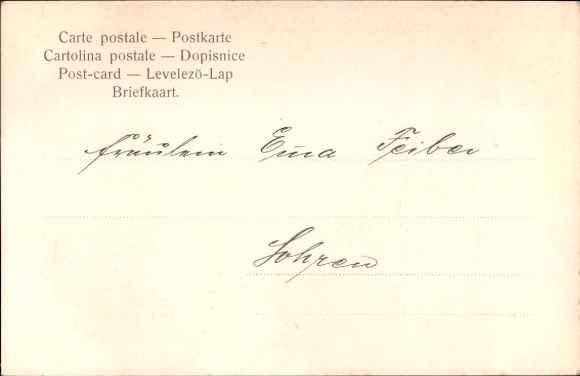 Carte postale — Postkarte
Cartolina postale — Dopisnice
Post-card — Levelezö-Lap
Briefkaart.
Fräulein Ema Feiber
Sohren